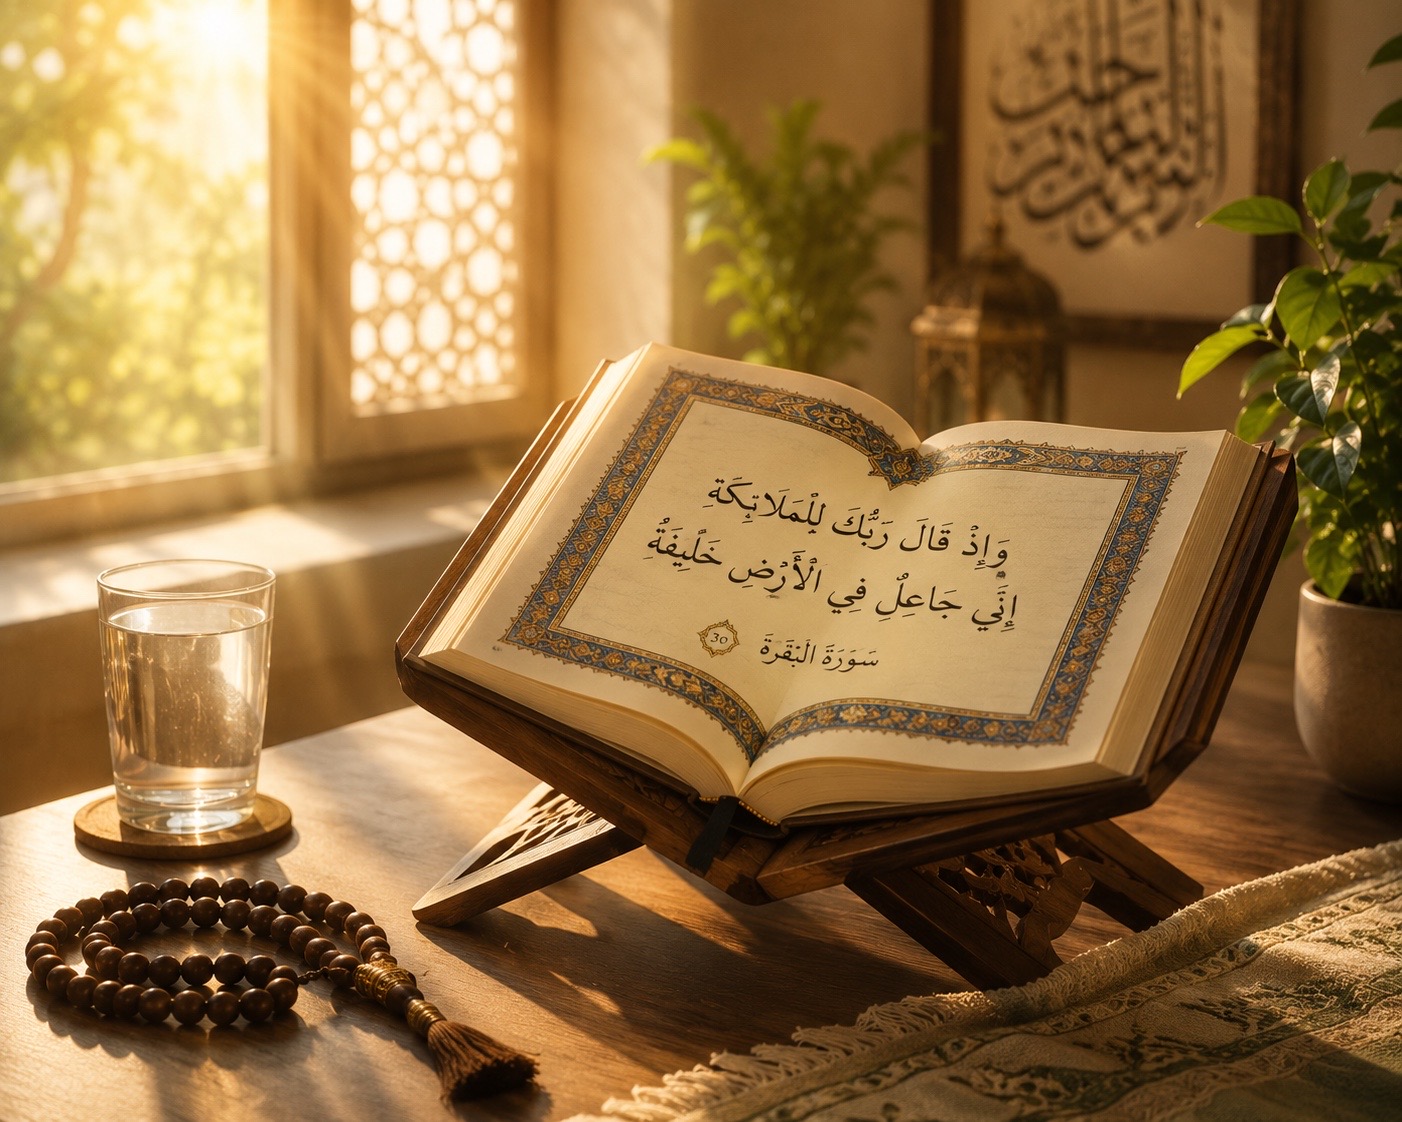 وَإِذْ قَالَ رَبُّكَ لِلْمَلَائِكَةِ
إِنَّي جَاعِلٌ فِي الْأَرْضِ خَلْيِفَةُ
سَوَرَةَ الْبَقَرَةَ 30